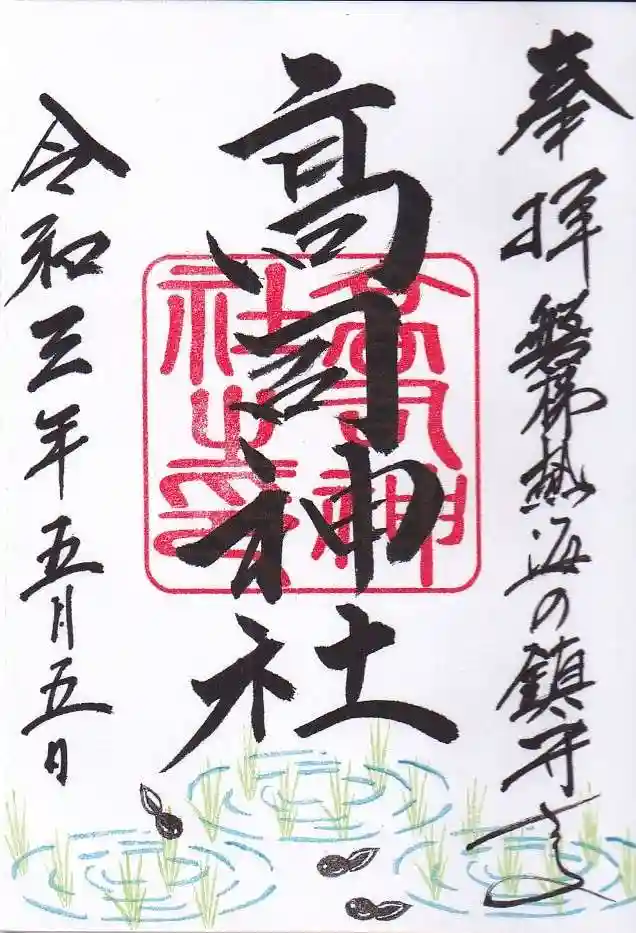 奉拝 磐梯熱海の鎮守
高司神社
高司神
社之印
令和三年五月五日